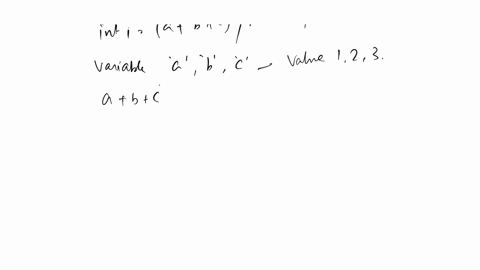 int
variable 'a', 'b', 'c' - value 1, 2, 3.
a + b + c